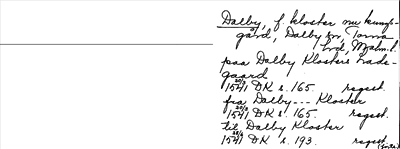 Dalby, f. kloster nu kungs-
gård, Dalby sn, Torna
hd, Malm. l.
paa Dalby Klosters Lade-
gaard
1541 20/3 DK s. 165. regest.
fra Dalby --- Kloster
1541 20/3 DK s. 165. regest.
til Dalby Kloster
1541 DK s. 193. regest